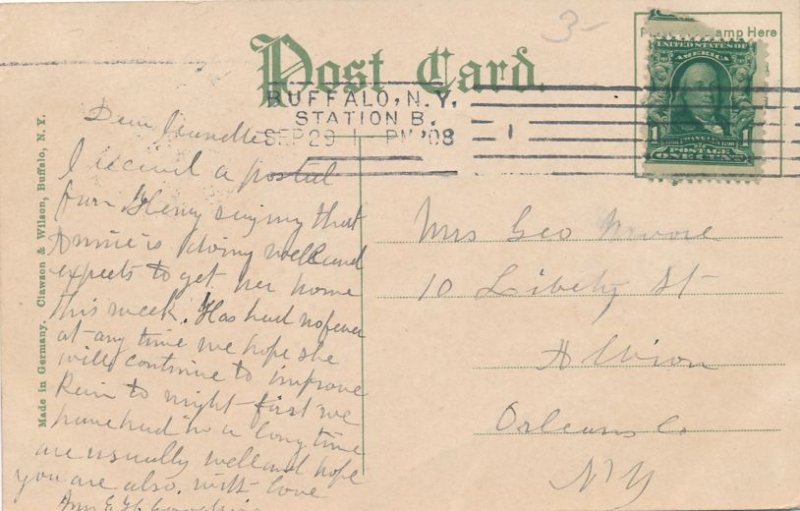 3-
Place Stamp Here
Post Card.
UNITED STATES OF
AMERICA
1
POSTAGE
ONE CENT
BUFFALO, N.Y.
STATION B.
SEP 29 1 - PM '08
1
Made in Germany. Clawson & Wilson, Buffalo, N. Y.
Dear
I received a postal
from Henry saying that
Annie is doing well and
expects to get her home
this week. Has had no fever
at any time we hope she
will continue to improve
Rain to night first we
have had in a long time
are usually well and hope
you are also. with love
Mrs Geo Moore
10 Liberty St
Albion
Orleans Co.
NY